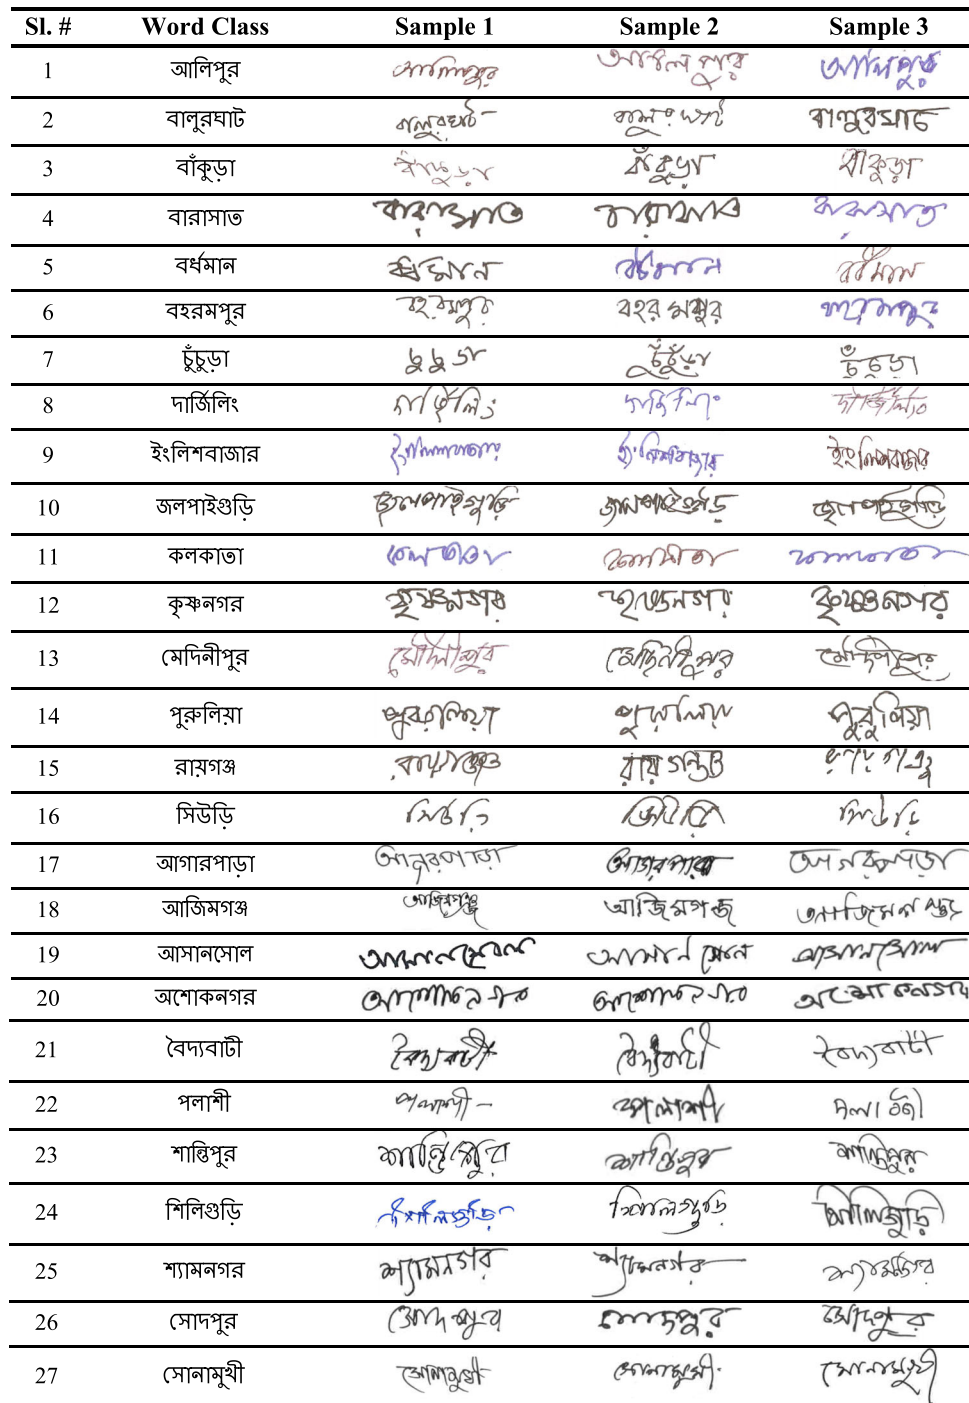 Sl. # Word Class Sample 1 Sample 2 Sample 3
1 আলিপুর আলিপুর আলিপুর আলিপুর
2 বালুরঘাট বালুরঘাট বালুরঘাট বালুরঘাট
3 বাঁকুড়া বাঁকুড়া বাঁকুড়া বাঁকুড়া
4 বারাসাত বারাসাত বারাসাত বারাসাত
5 বর্ধমান বর্ধমান বর্ধমান বর্ধমান
6 বহরমপুর বহরমপুর বহরমপুর বহরমপুর
7 চুঁচুড়া চুচুড়া চুঁচুঁড়া চুঁচুড়া
8 দার্জিলিং দার্জিলিং দার্জিলিং দার্জিলিং
9 ইংলিশবাজার ইংলিশবাজার ইংলিশবাজার ইংলিশবাজার
10 জলপাইগুড়ি জলপাইগুড়ি জলপাইগুড়ি জলপাইগুড়ি
11 কলকাতা কলকাতা কলকাতা কলকাতা
12 কৃষ্ণনগর কৃষ্ণনগর কৃষ্ণনগর কৃষ্ণনগর
13 মেদিনীপুর মেদিনীপুর মেদিনীপুর মেদিনীপুর
14 পুরুলিয়া পুরুলিয়া পুরুলিয়া পুরুলিয়া
15 রায়গঞ্জ রায়গঞ্জ রায়গঞ্জ রায়গঞ্জ
16 সিউড়ি সিউড়ি সিউড়ি সিউড়ি
17 আগারপাড়া আগারপাড়া আগারপাড়া আগারপাড়া
18 আজিমগঞ্জ আজিমগঞ্জ আজিমগঞ্জ আজিমগঞ্জ
19 আসানসোল আসানসোল আসানসোল আসানসোল
20 অশোকনগর অশোকনগর অশোকনগর অশোকনগর
21 বৈদ্যবাটী বৈদ্যবাটী বৈদ্যবাটী বৈদ্যবাটী
22 পলাশী পলাশী পলাশী পলাশী
23 শান্তিপুর শান্তিপুর শান্তিপুর শান্তিপুর
24 শিলিগুড়ি শিলিগুড়ি শিলিগুড়ি শিলিগুড়ি
25 শ্যামনগর শ্যামনগর শ্যামনগর শ্যামনগর
26 সোদপুর সোদপুর সোদপুর সোদপুর
27 সোনামুখী সোনামুখী সোনামুখী সোনামুখী